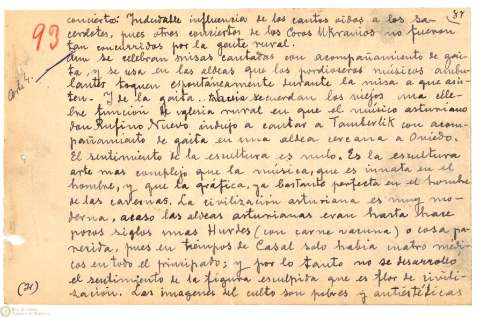 87
93
concierto: Indudable influencia de los cantos oídos a los sa-
cerdotes, pues otros conciertos de los Coros Ukranios no fueron
tan concurridos por la gente rural.
Aun se celebran misas cantadas con acompañamiento de gai-
ta, y se usa en las aldeas que los pordioseros músicos ambu-
lantes toquen espontáneamente durante la misa a que asis-
ten. Y de la gaita recuerdan los viejos una céle-
bre función de iglesia rural en que el músico asturiano
don Rufino Nuevo indujo a cantar a Tamberlik con acom-
pañamiento de gaita en una aldea cercana a Oviedo.
El sentimiento de la escultura es nulo. Es la escultura
arte mas complejo que la música, que es innata en el
hombre, y que la gráfica, ya bastante perfecta en el hombre
de las cavernas. La civilización asturiana es muy mo-
derna, acaso las aldeas asturianas eran hasta hace
pocos siglos unas Hurdes (con carne vacuna) o cosa pa-
recida, pues en tiempos de Casal solo había cuatro médi-
cos en todo el principado; y por lo tanto no se desarrolló
el sentimiento de la figura esculpida que es flor de civili-
zación. Las imagenes del culto son pobres y antiestéticas